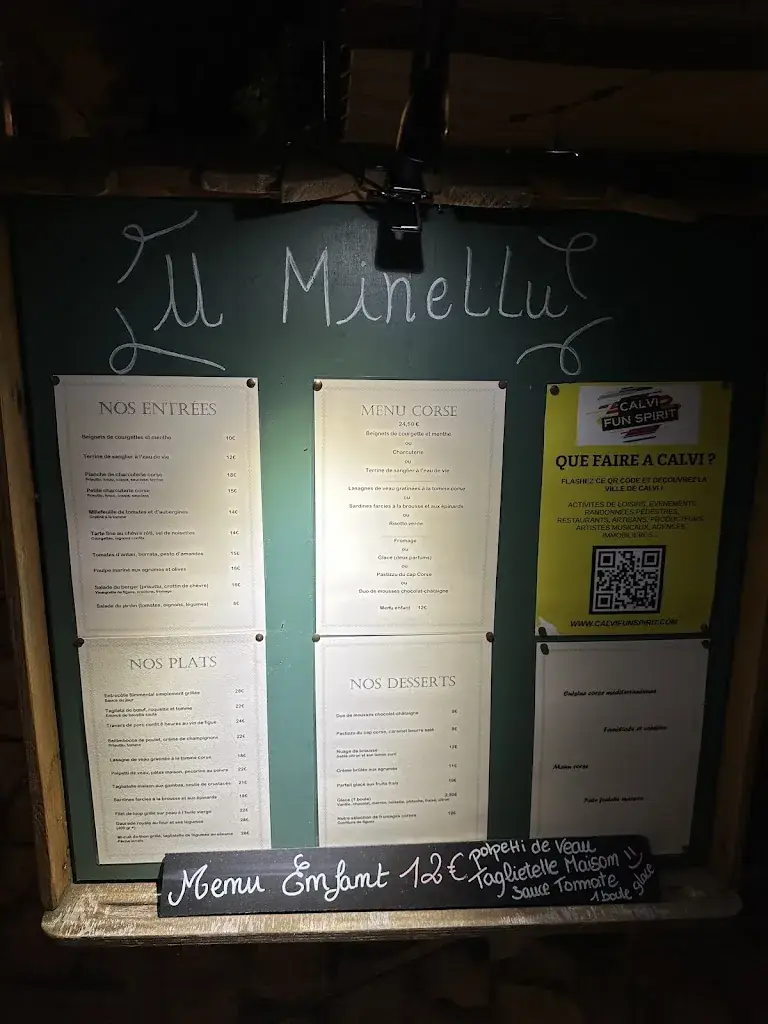 U Minellu
NOS ENTRÉES
Beignets de courgettes et menthe 10€
Terrine de sanglier à l'eau de vie 12€
Planche de charcuterie corse 18€
Petite charcuterie corse 15€
Millefeuille de tomates et d'aubergines 14€
Tarte fine au chèvre rôti, sel de noisettes 14€
Tomates d'antan, burrata, pesto d'amandes 15€
Poulpe mariné aux agrumes et olives 16€
Salade du berger (prisuttu, crottin de chèvre) 16€
Salade du jardin (tomates, oignons, légumes) 8€
NOS PLATS
Entrecôte Simmental simplement grillée 28€
Sauce du jour
Tagliata de bœuf, roquette et tomme 22€
Travers de porc confit 8 heures au vin de figue 24€
Saltimbocca de poulet, crème de champignons 22€
Lasagne de veau gratinée à la tomme corse 18€
Polpetti de veau, pâtes maison, pecorino au poivre 22€
Tagliatelle maison aux gambas, coulis de crustacés 21€
Sardines farcies à la brousse et aux épinards 19€
Filet de loup grillé sur peau à l'huile vierge 22€
Daurade royale au four et ses légumes 28€
MENU CORSE
24,50 €
Beignets de courgette et menthe
ou
Charcuterie
ou
Terrine de sanglier à l'eau de vie
Lasagnes de veau gratinées à la tomme corse
ou
Sardines farcies à la brousse et aux épinards
ou
Risotto verde
Fromage
ou
Glace (deux parfums)
ou
Pastizzu du cap Corse
ou
Duo de mousses chocolat-châtaigne
Menu enfant 12€
NOS DESSERTS
Duo de mousses chocolat-châtaigne
Pastizzu du cap corse, caramel beurre salé
Nuage de brousse 12€
Crème brûlée aux agrumes 11€
Parfait glacé aux fruits frais 10€
Glace (1 boule)
Notre sélection de fromages corses 12€
Confiture de figues
CALVI
FUN SPIRIT
QUE FAIRE A CALVI ?
FLASHEZ CE QR CODE ET DECOUVREZ LA
VILLE DE CALVI !
ACTIVITES DE LOISIRS, EVENEMENTS,
RANDONNEES PEDESTRES,
RESTAURANTS, ARTISANS, PRODUCTEURS,
ARTISTES MUSICAUX, AGENCES
IMMOBILIERES...
WWW.CALVIFUNSPIRIT.COM
Cuisine corse méditerranéenne
Familiale et créative
Menu corse
Menu Enfant 12€
polpetti de veau
Taglietelle Maison
sauce Tomate
1 boule glace